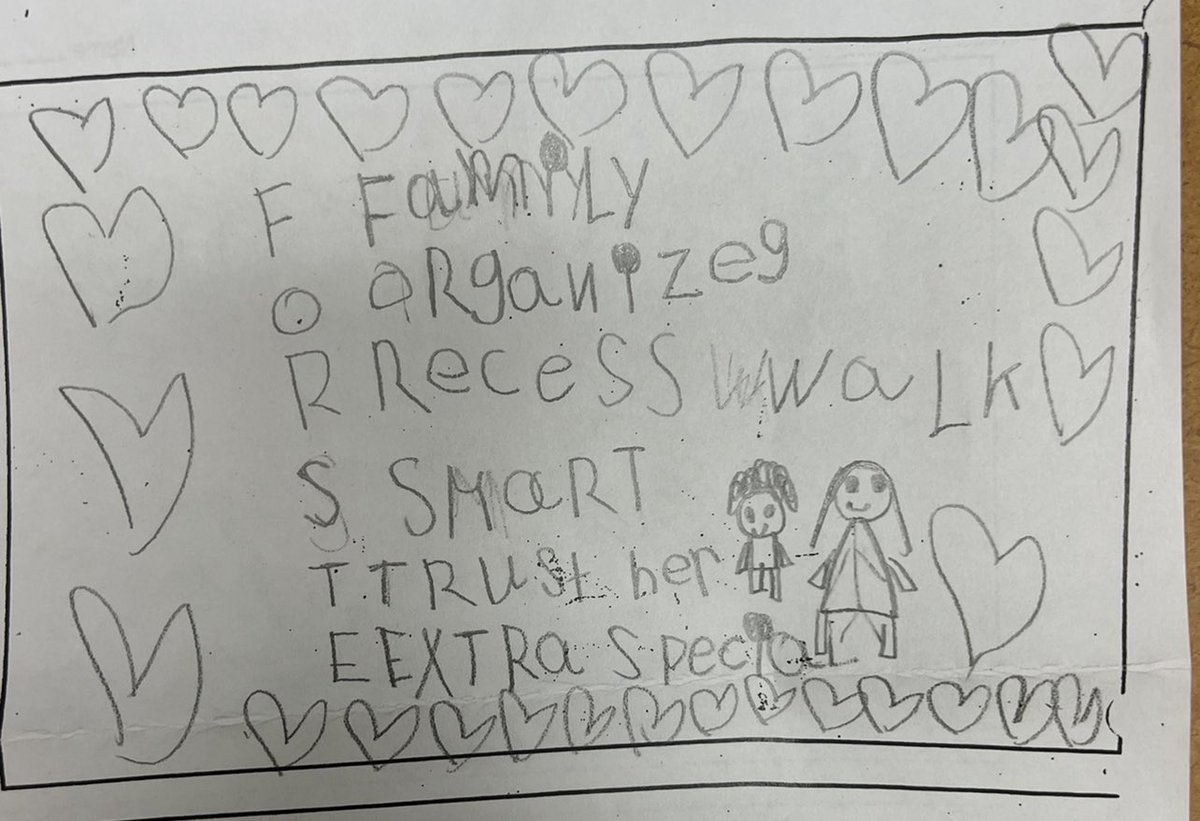 F FamiLy
O ORganizeg
R RecessS WwaLk
S SMaRT
T TRUSt her
E EXTRa SpeciaL